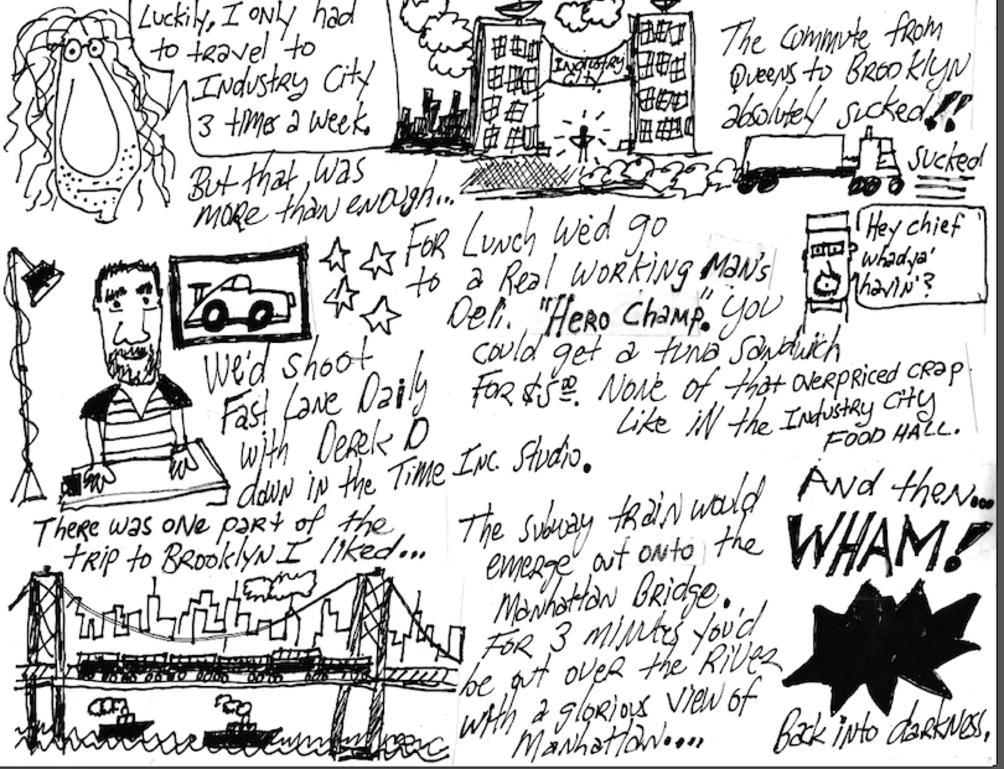 Luckily, I only had
to travel to
Industry City
3 times a week.
But that was
more than enough...
INDUSTRY
CITY
The commute from
Queens to Brooklyn
absolutely sucked!!
sucked
We'd shoot
Fast Lane Daily
with Derek D
down in the Time Inc. Studio.
For Lunch we'd go
to a Real working Man's
Deli. "Hero Champ." you
could get a tuna sandwich
For $5.00. None of that overpriced crap
Like in the Industry City
FOOD HALL.
Hey chief
whadya'
havin'?
There was one part of the
trip to Brooklyn I liked...
The subway train would
emerge out onto the
Manhattan Bridge.
For 3 minutes you'd
be out over the River
with a glorious view of
Manhattan....
And then...
WHAM!
Back into darkness.